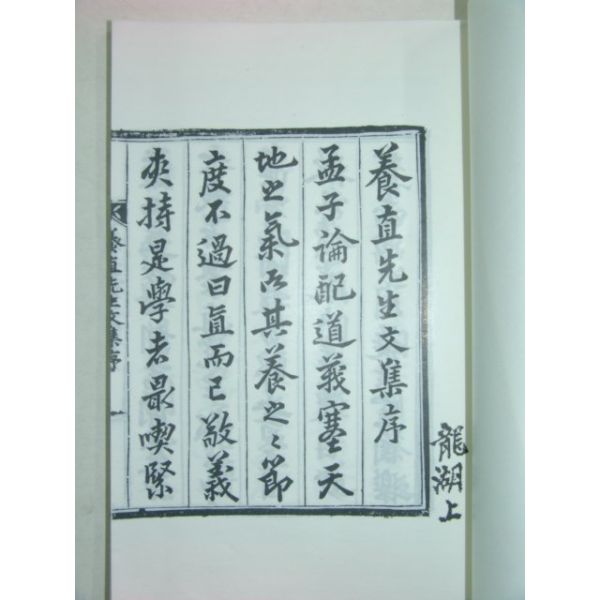 龍湖上
養直先生文集序
孟子論配道義塞天
地之氣而其養之〻節
度不過曰直而已敬義
夾持是學者最喫緊
養直先生文集序 一